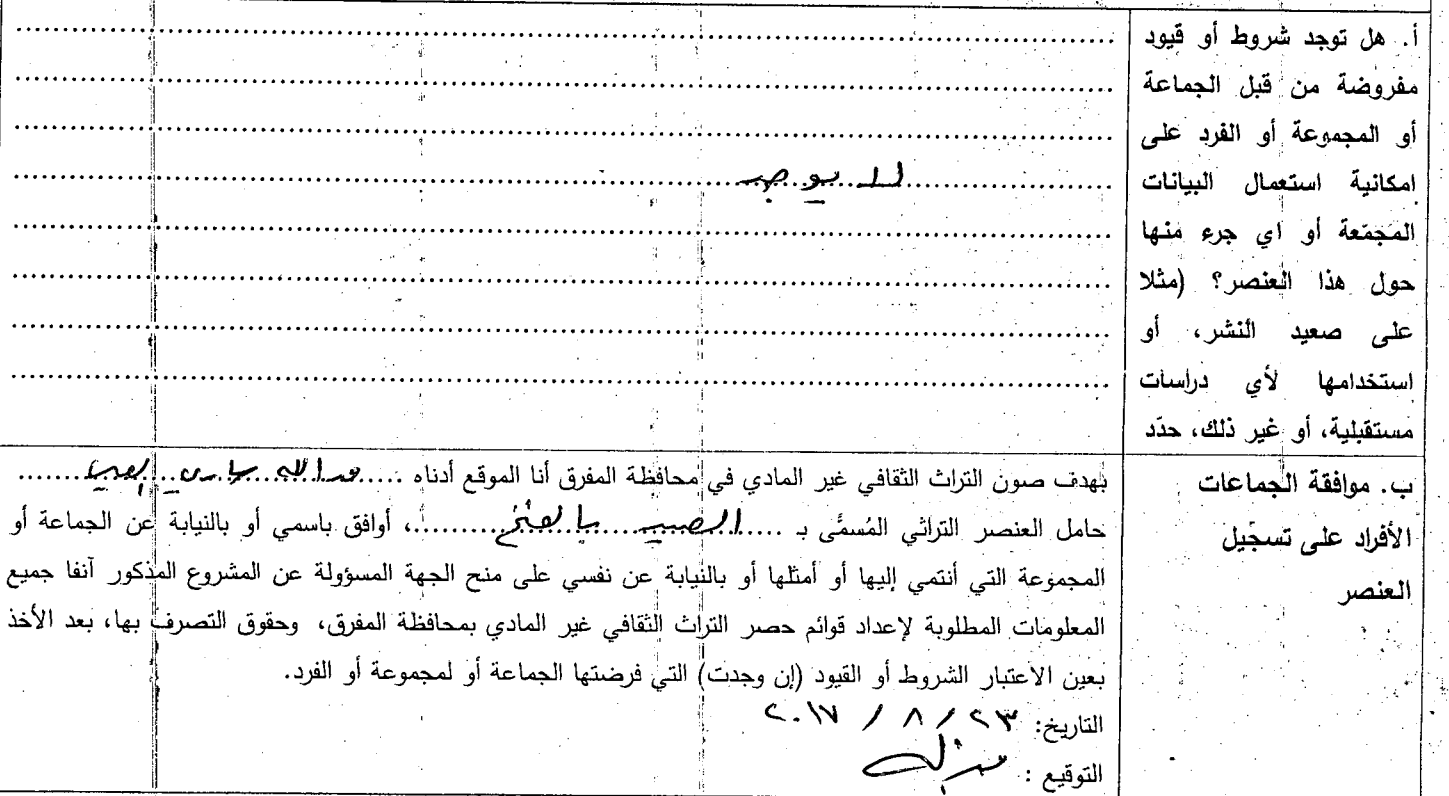 أ. هل توجد شروط أو قيود
مفروضة من قبل الجماعة
أو المجموعة أو الفرد على
امكانية استعمال البيانات
المجمّعة أو اي جرء منها
حول هذا العنصر؟ (مثلا
على صعيد النشر، أو
استخدامها لأي دراسات
مستقبلية، أو غير ذلك، حدّد
لا يوجد
ب. موافقة الجماعات
الأفراد على تسجّيل
العنصر
بهدف صون التراث الثقافي غير المادي في محافظة المفرق أنا الموقع أدناه
حامل العنصر التراثي المُسمَّى بـ الصيد بالفخ، أوافق باسمي أو بالنيابة عن الجماعة أو
المجموعة التي أنتمي إليها أو أمثلها أو بالنيابة عن نفسي على منح الجهة المسؤولة عن المشروع المذكور آنفا جميع
المعلومات المطلوبة لإعداد قوائم حصر التراث الثقافي غير المادي بمحافظة المفرق، وحقوق التصرف بها، بعد الأخذ
بعين الاعتبار الشروط أو القيود (إن وجدت) التي فرضتها الجماعة أو لمجموعة أو الفرد.
التاريخ: ٢٣ / ٨ / ٢٠١٧
التوقيع :